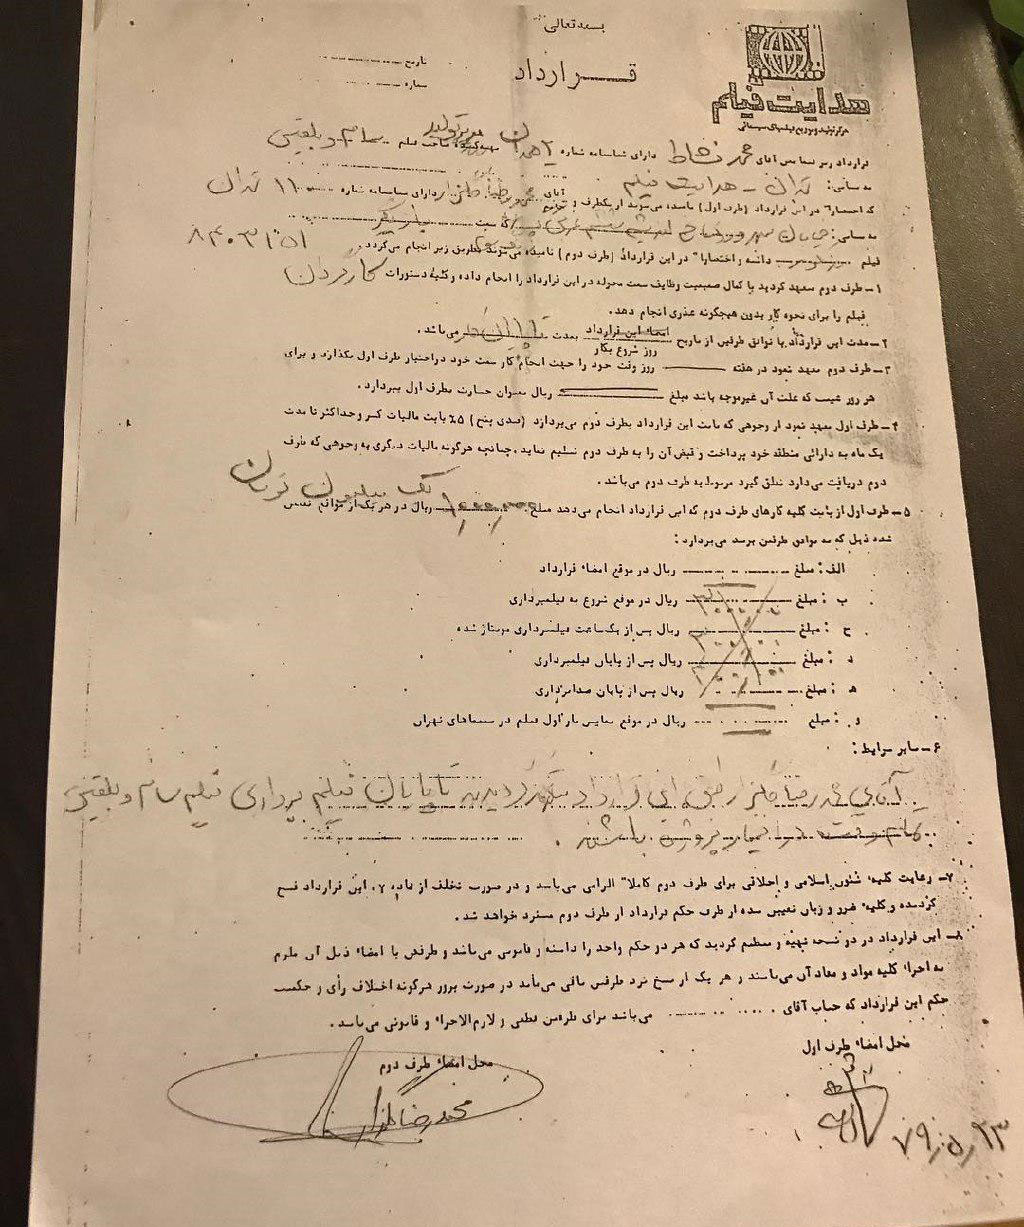 بسمه تعالی
قرارداد
تاریخ
شماره
هدایت فیلم
مرکز تولید و توزیع فیلمهای سینمائی
قرارداد زیر فیمابین آقای محمد نشاط دارای شناسنامه شماره ۲ همدان مدیر تولید صاحب فیلم سام و نرگس
به نشانی: تهران - هدایت فیلم
که اختصارا" در این قرارداد (طرف اول) نامیده می‌شوند از یکطرف و آقای محمدرضا گلزار دارای شناسنامه شماره ۱۱۰۰۰ تهران
به نشانی: خیابان سهروردی که سمت بازیگر
فیلم داشته و اختصارا" در این قرارداد (طرف دوم) نامیده می‌شوند بطریق زیر انجام می‌گردد. ۸۴۰۳۱۵۱
۱- طرف دوم متعهد گردید با کمال صمیمیت وظایف سمت محوله در این قرارداد را انجام داده و کلیه دستورات کارگردان
فیلم را برای نحوه کار بدون هیچگونه عذری انجام دهد.
۲- مدت این قرارداد با توافق طرفین از تاریخ امضاء این قرارداد بمدت تا پایان کار می‌باشد.
روز شروع بکار
۳- طرف دوم متعهد نمود در هفته روز وقت خود را جهت انجام کار سمت خود در اختیار طرف اول بگذارد و برای
هر روز غیبت که علت آن غیرموجه باشد مبلغ ریال بعنوان خسارت بطرف اول بپردازد.
۴- طرف اول متعهد نمود از وجوهی که بابت این قرارداد بطرف دوم می‌پردازد (صدی پنج) ۵٪ بابت مالیات کسر و حداکثر تا مدت
یک ماه به دارائی منطقه خود پرداخت و قبض آن را به طرف دوم تسلیم نماید. چنانچه هرگونه مالیات دیگری به وجوهی که طرف
دوم دریافت می‌دارد تعلق گیرد مربوط به طرف دوم می‌باشد.
یک میلیون تومان
۵- طرف اول از بابت کلیه کارهای طرف دوم که این قرارداد انجام می‌دهد مبلغ ریال در هر یک از مواقع تعیین
شده ذیل که به توافق طرفین برسد می‌پردازد:
الف: مبلغ ریال در موقع امضاء قرارداد
ب: مبلغ ریال در موقع شروع به فیلمبرداری
ج: مبلغ ریال پس از یکساعت فیلمبرداری مونتاژ شده
د: مبلغ ریال پس از پایان فیلمبرداری
ه: مبلغ ریال پس از پایان صدابرداری
و: مبلغ ریال در موقع نمایش بار اول فیلم در سینماهای تهران
۶- سایر شرایط:
آقای محمدرضا گلزار طی این قرارداد متعهد گردیدند تا پایان فیلم برداری فیلم سام و نرگس
تمام وقت در اختیار پروژه باشند.
۷- رعایت کلیه شئون اسلامی و اخلاقی برای طرف دوم کاملا" الزامی می‌باشد و در صورت تخلف از ماده ۷، این قرارداد فسخ
گردیده و کلیه ضرر و زیان تعیین شده از طرف حکم قرارداد از طرف دوم مسترد خواهد شد.
۸- این قرارداد در دو نسخه تهیه و تنظیم گردید که هر دو حکم واحد را داشته و قانونی می‌باشد و طرفین با امضاء ذیل آن ملزم
به اجراء کلیه مواد و مفاد آن می‌باشند و هر یک از نسخ نزد طرفین باقی می‌ماند در صورت بروز هرگونه اختلاف رأی و حکمیت
حکم این قرارداد که جناب آقای می‌باشد برای طرفین قطعی و لازم‌الاجراء و قانونی می‌باشد.
محل امضاء طرف اول
محل امضاء طرف دوم
محمدرضا گلزار
۷۹/۵/۲۳